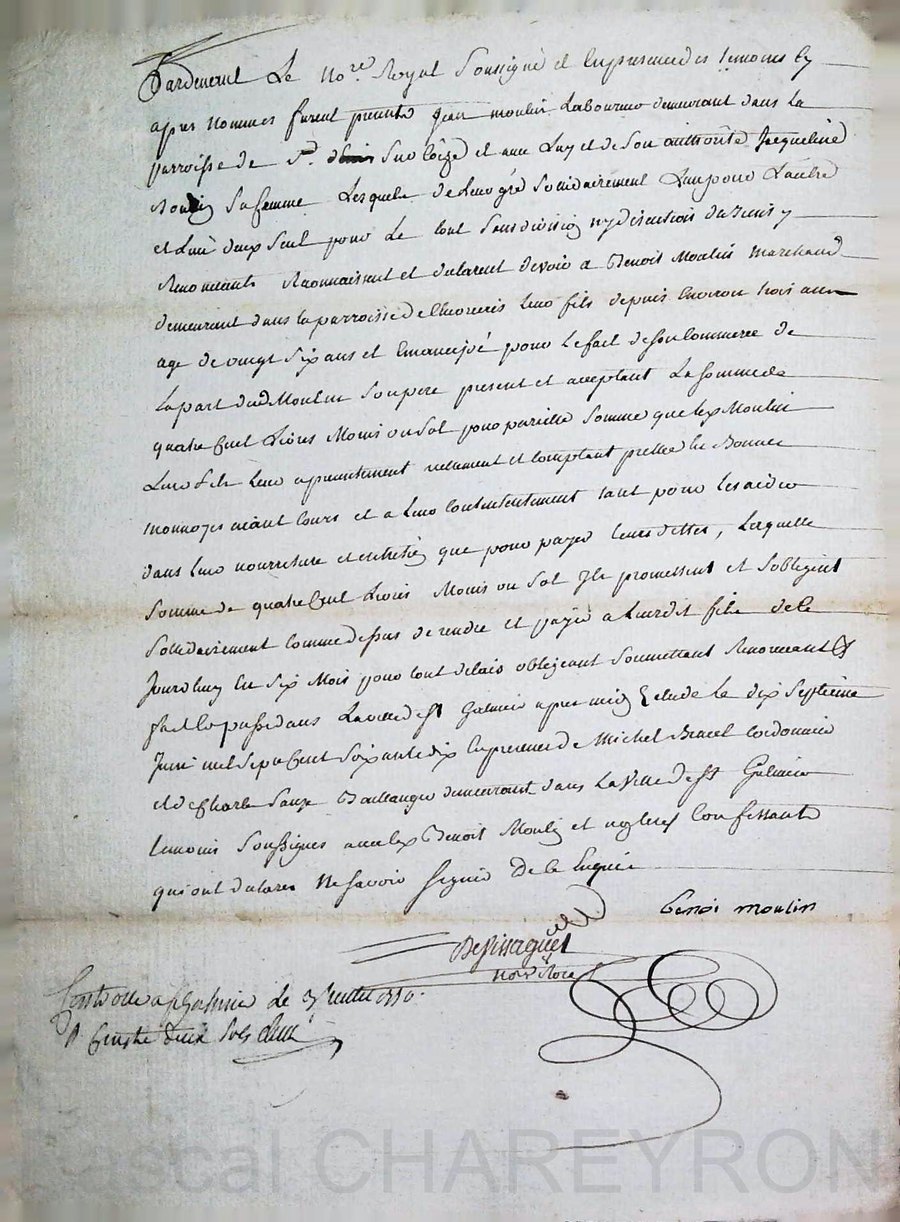 Pardevent Le No.re Royal Soussigné et En presence des temoins Cy
apres Nommes furent presents Jean moulin Laboureur demeurant dans La
parroisse de St. denis Sur Coize et avec Luy et de Son authorité Jacqueline
Sa femme Lesquels de Leur gré Solidairement L'un pour L'autre
et L'un deux Seul pour Le tout Sans division ny discution
Renoncants Reconnaissent et declarent devoir a Benoit Moulin Marchand
demeurant dans la parroisse de Leur fils depuis Environ trois ans
age de vingt Six ans et Emancipé pour Le fait de Son Commerce de
La part dud Moulin Son pere present et acceptant La Somme de
quatre Cent Livres Moins un Sol pour pareille Somme que led Moulin
Leur fils Leur a presentement reelement et Comptant prettée En Bonnes
monnoyes aiant Cours et a Leur Contentement tant pour Les aider
dans Leur nourriture et entretien que pour payer Leurs dettes, Laquelle
Somme de quatre Cent Livres Moins un Sol Ils promettent et S'obligent
Solidairement Comme dessus de rendre et payer a Leurdit fils de Ce
Jourd'huy En Six Mois pour tout delais obligeant Soumettant Renoncant &
fait et passé dans La ville de St Galmier apres midy Etude Le dix Septieme
Juin mil Sept Cent Soixante dix En presence de Michel Cordonnier
et de Charle Boullanger demeurant dans La Ville de St Galmier
temoins Soussignes avec led Benoit Moulin et non Les Confessants
qui ont declares Ne Savoir Signer De Ce Enquis
benoi moulin
No.re Royal
Controllé a St Galmier Le 3 Juillet 1770.
R. Cinq. deux Sols
Pascal CHAREYRON